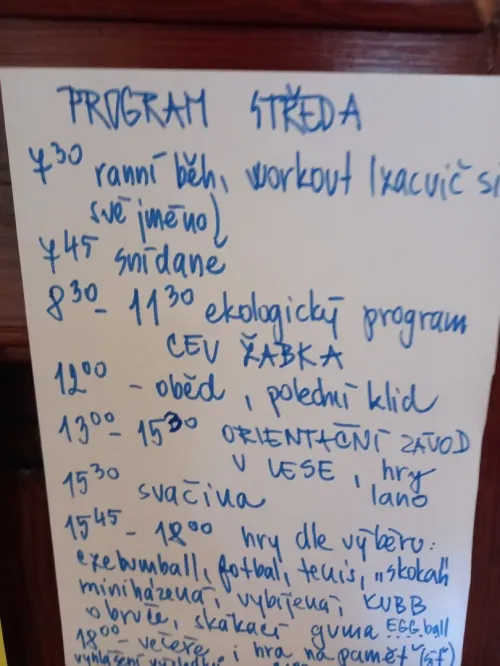 PROGRAM STŘEDA
7³⁰ ranní běh, workout (zacvič si
své jméno)
7⁴⁵ snídane
8³⁰ - 11³⁰ ekologický program
CEV ŽABKA
12⁰⁰ - oběd, polední klid
13⁰⁰ - 15³⁰ ORIENTAČNÍ ZÁVOD
V LESE, hry
lano
15³⁰ svačina
15⁴⁵ - 18⁰⁰ hry dle výběru:
fotbal, tenis, „skokan"
miniházená, vybíjená, KUBB
obruče, skákací guma EGG ball
18⁰⁰ - večeře, i hra na paměť
vyhlášení